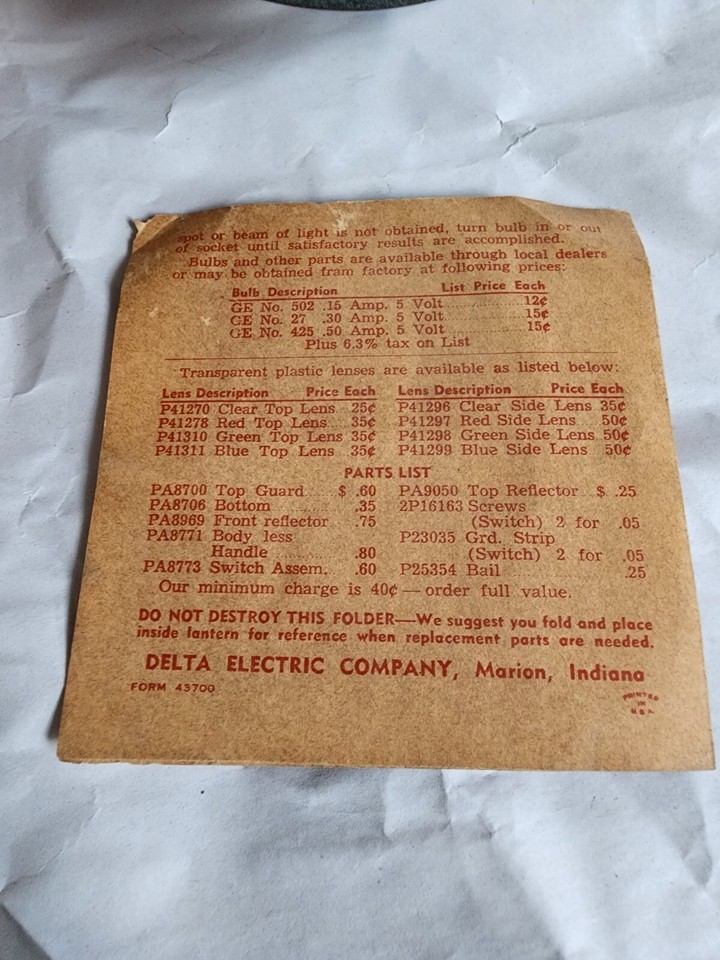 spot or beam of light is not obtained, turn bulb in or out
of socket until satisfactory results are accomplished.
Bulbs and other parts are available through local dealers
or may be obtained fram factory at following prices:
Bulb Description List Price Each
GE No. 502 .15 Amp. 5 Volt 12¢
GE No. 27 .30 Amp. 5 Volt 15¢
GE No. 425 .50 Amp. 5 Volt 15¢
Plus 6.3% tax on List
Transparent plastic lenses are available as listed below:
Lens Description Price Each Lens Description Price Each
P41270 Clear Top Lens 25¢ P41296 Clear Side Lens 35¢
P41278 Red Top Lens 35¢ P41297 Red Side Lens 50¢
P41310 Green Top Lens 35¢ P41298 Green Side Lens 50¢
P41311 Blue Top Lens 35¢ P41299 Blue Side Lens 50¢
PARTS LIST
PA8700 Top Guard $ .60 PA9050 Top Reflector $ .25
PA8706 Bottom .35 2P16163 Screws
PA8969 Front reflector .75 (Switch) 2 for .05
PA8771 Body less P23035 Grd. Strip
Handle .80 (Switch) 2 for .05
PA8773 Switch Assem. .60 P25354 Bail .25
Our minimum charge is 40¢—order full value.
DO NOT DESTROY THIS FOLDER—We suggest you fold and place
inside lantern for reference when replacement parts are needed.
DELTA ELECTRIC COMPANY, Marion, Indiana
FORM 43700
PRINTED
IN
U.S.A.